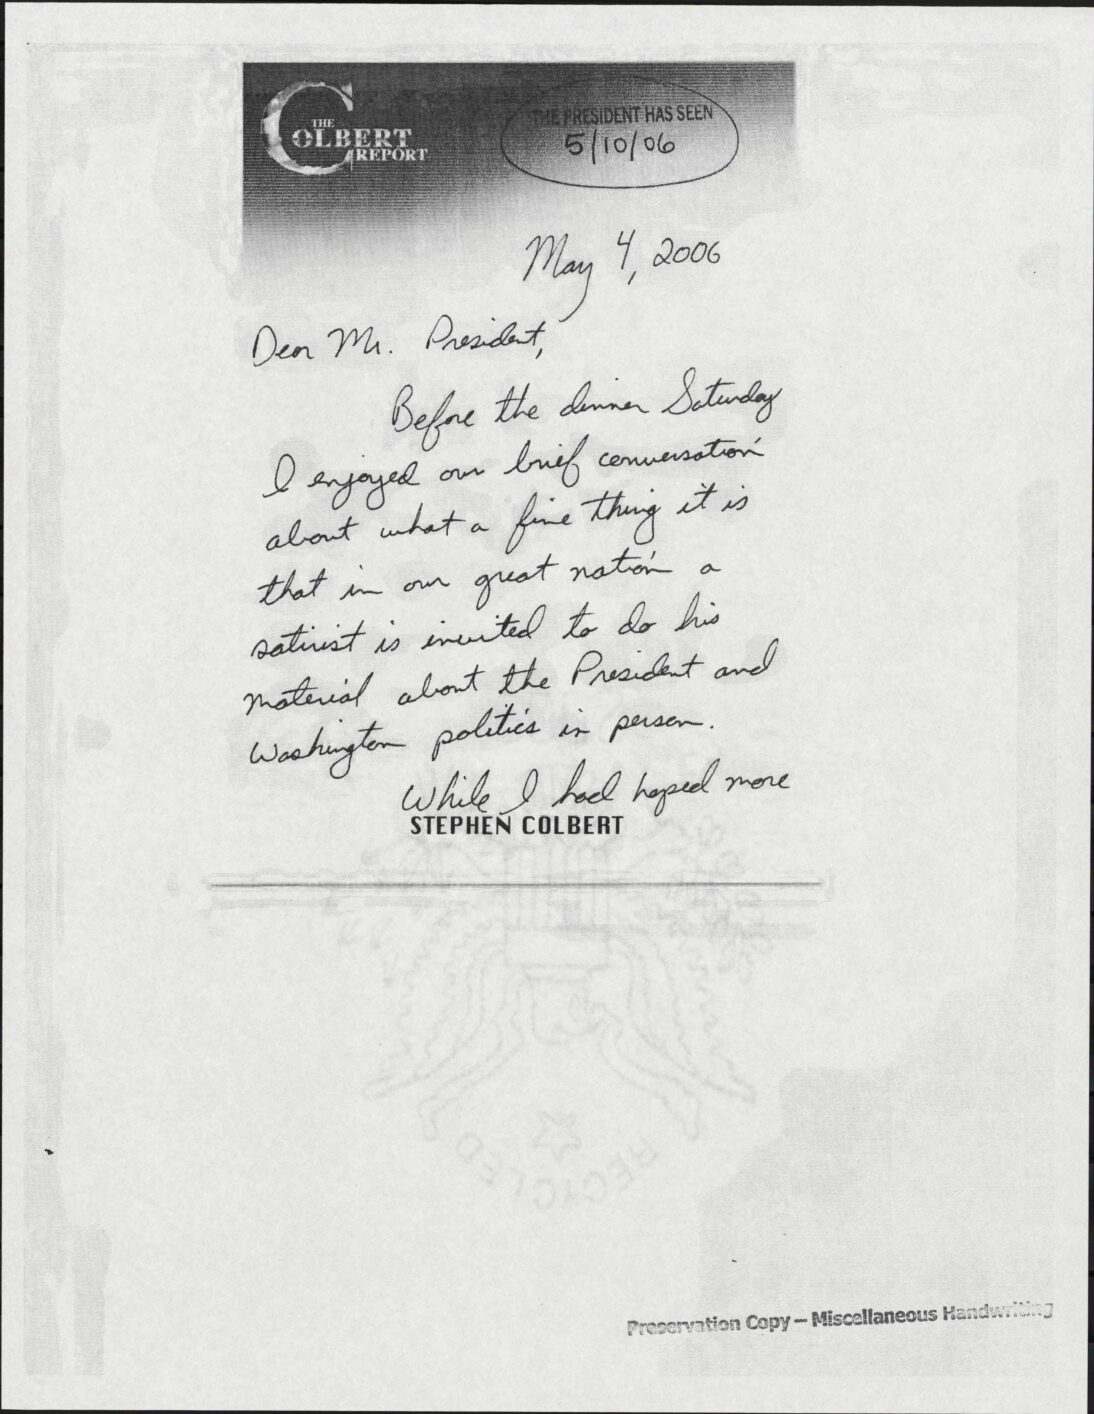 THE
COLBERT
REPORT
THE PRESIDENT HAS SEEN
5/10/06
May 4, 2006
Dear Mr. President,
Before the dinner Saturday
I enjoyed our brief conversation
about what a fine thing it is
that in our great nation a
satirist is invited to do his
material about the President and
Washington politics in person.
While I had hoped more
STEPHEN COLBERT
RECYCLED
Preservation Copy – Miscellaneous Handwriting